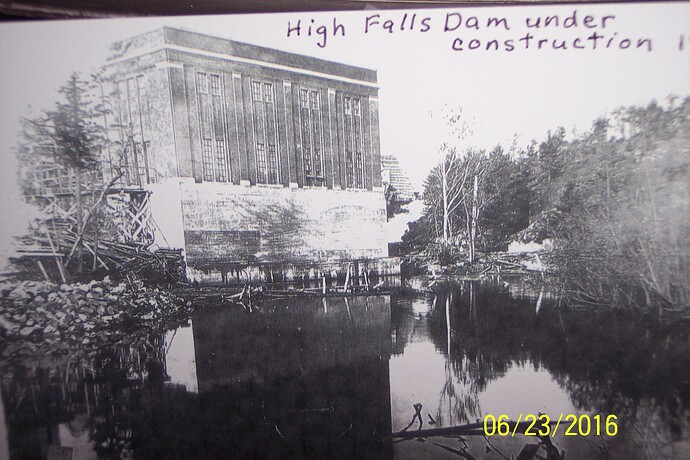 High Falls Dam under
construction
06/23/2016